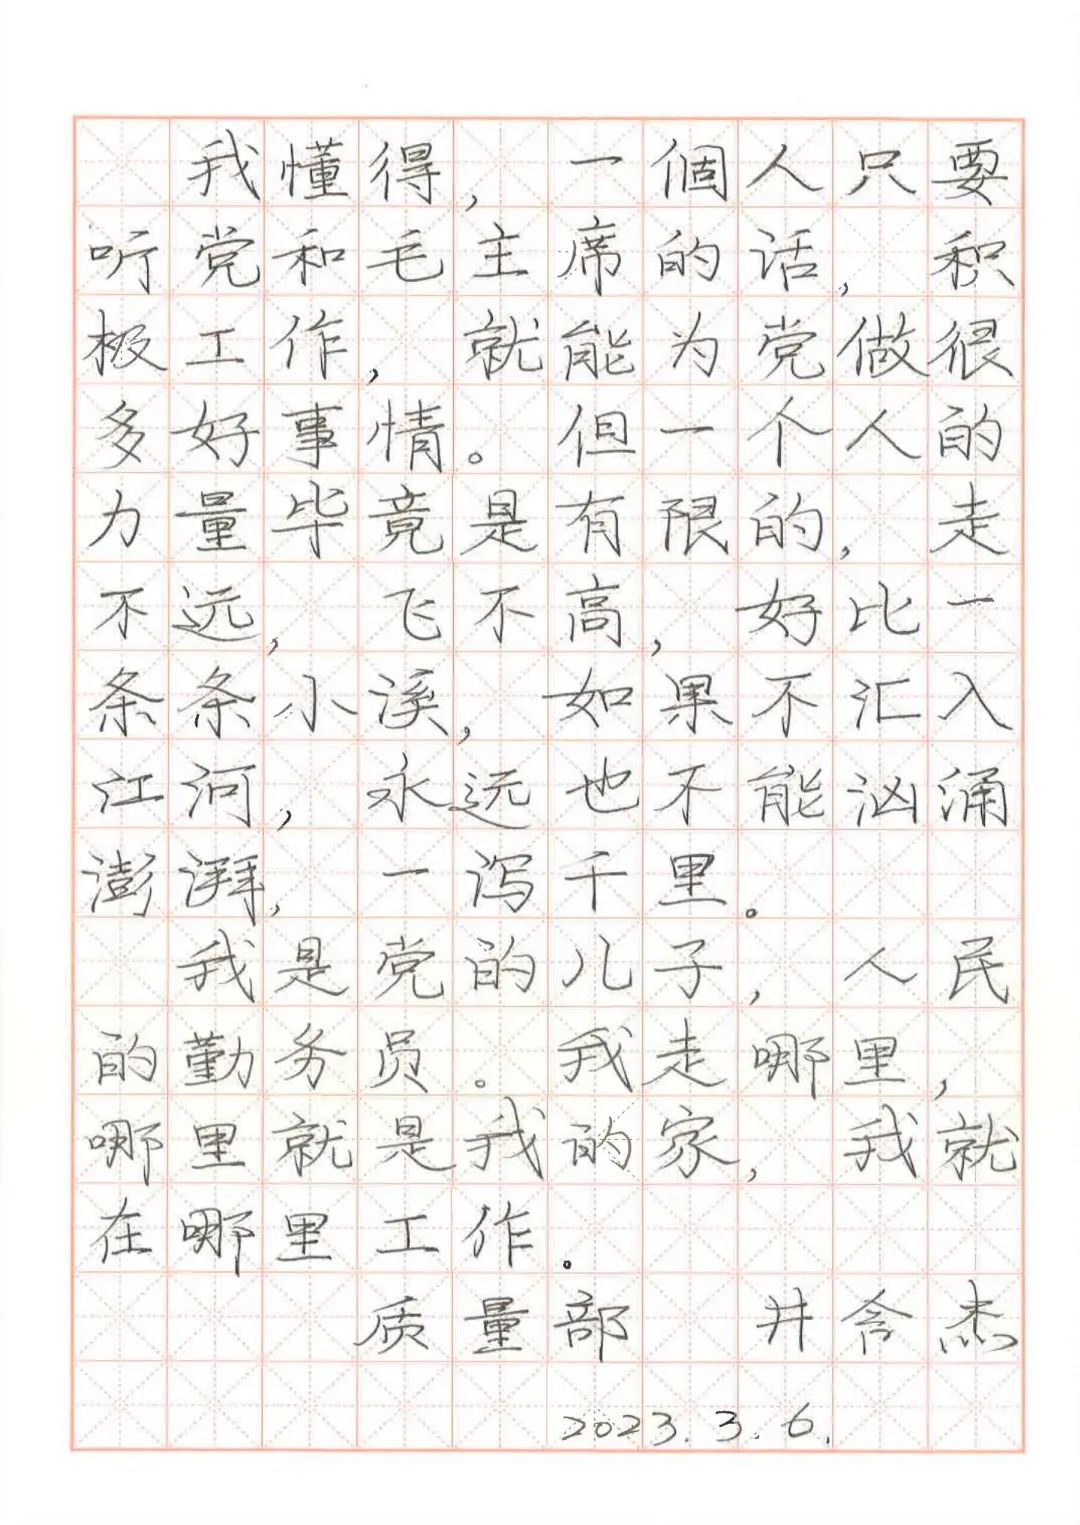 我懂得，一個人只要
听党和毛主席的话，积
极工作，就能为党做很
多好事情。但一个人的
力量毕竟是有限的，走
不远，飞不高，好比一
条条小溪，如果不汇入
江河，永远也不能汹涌
澎湃，一泻千里。
我是党的儿子，人民
的勤务员。我走哪里，
哪里就是我的家，我就
在哪里工作。
质量部 井含杰
2023.3.6.